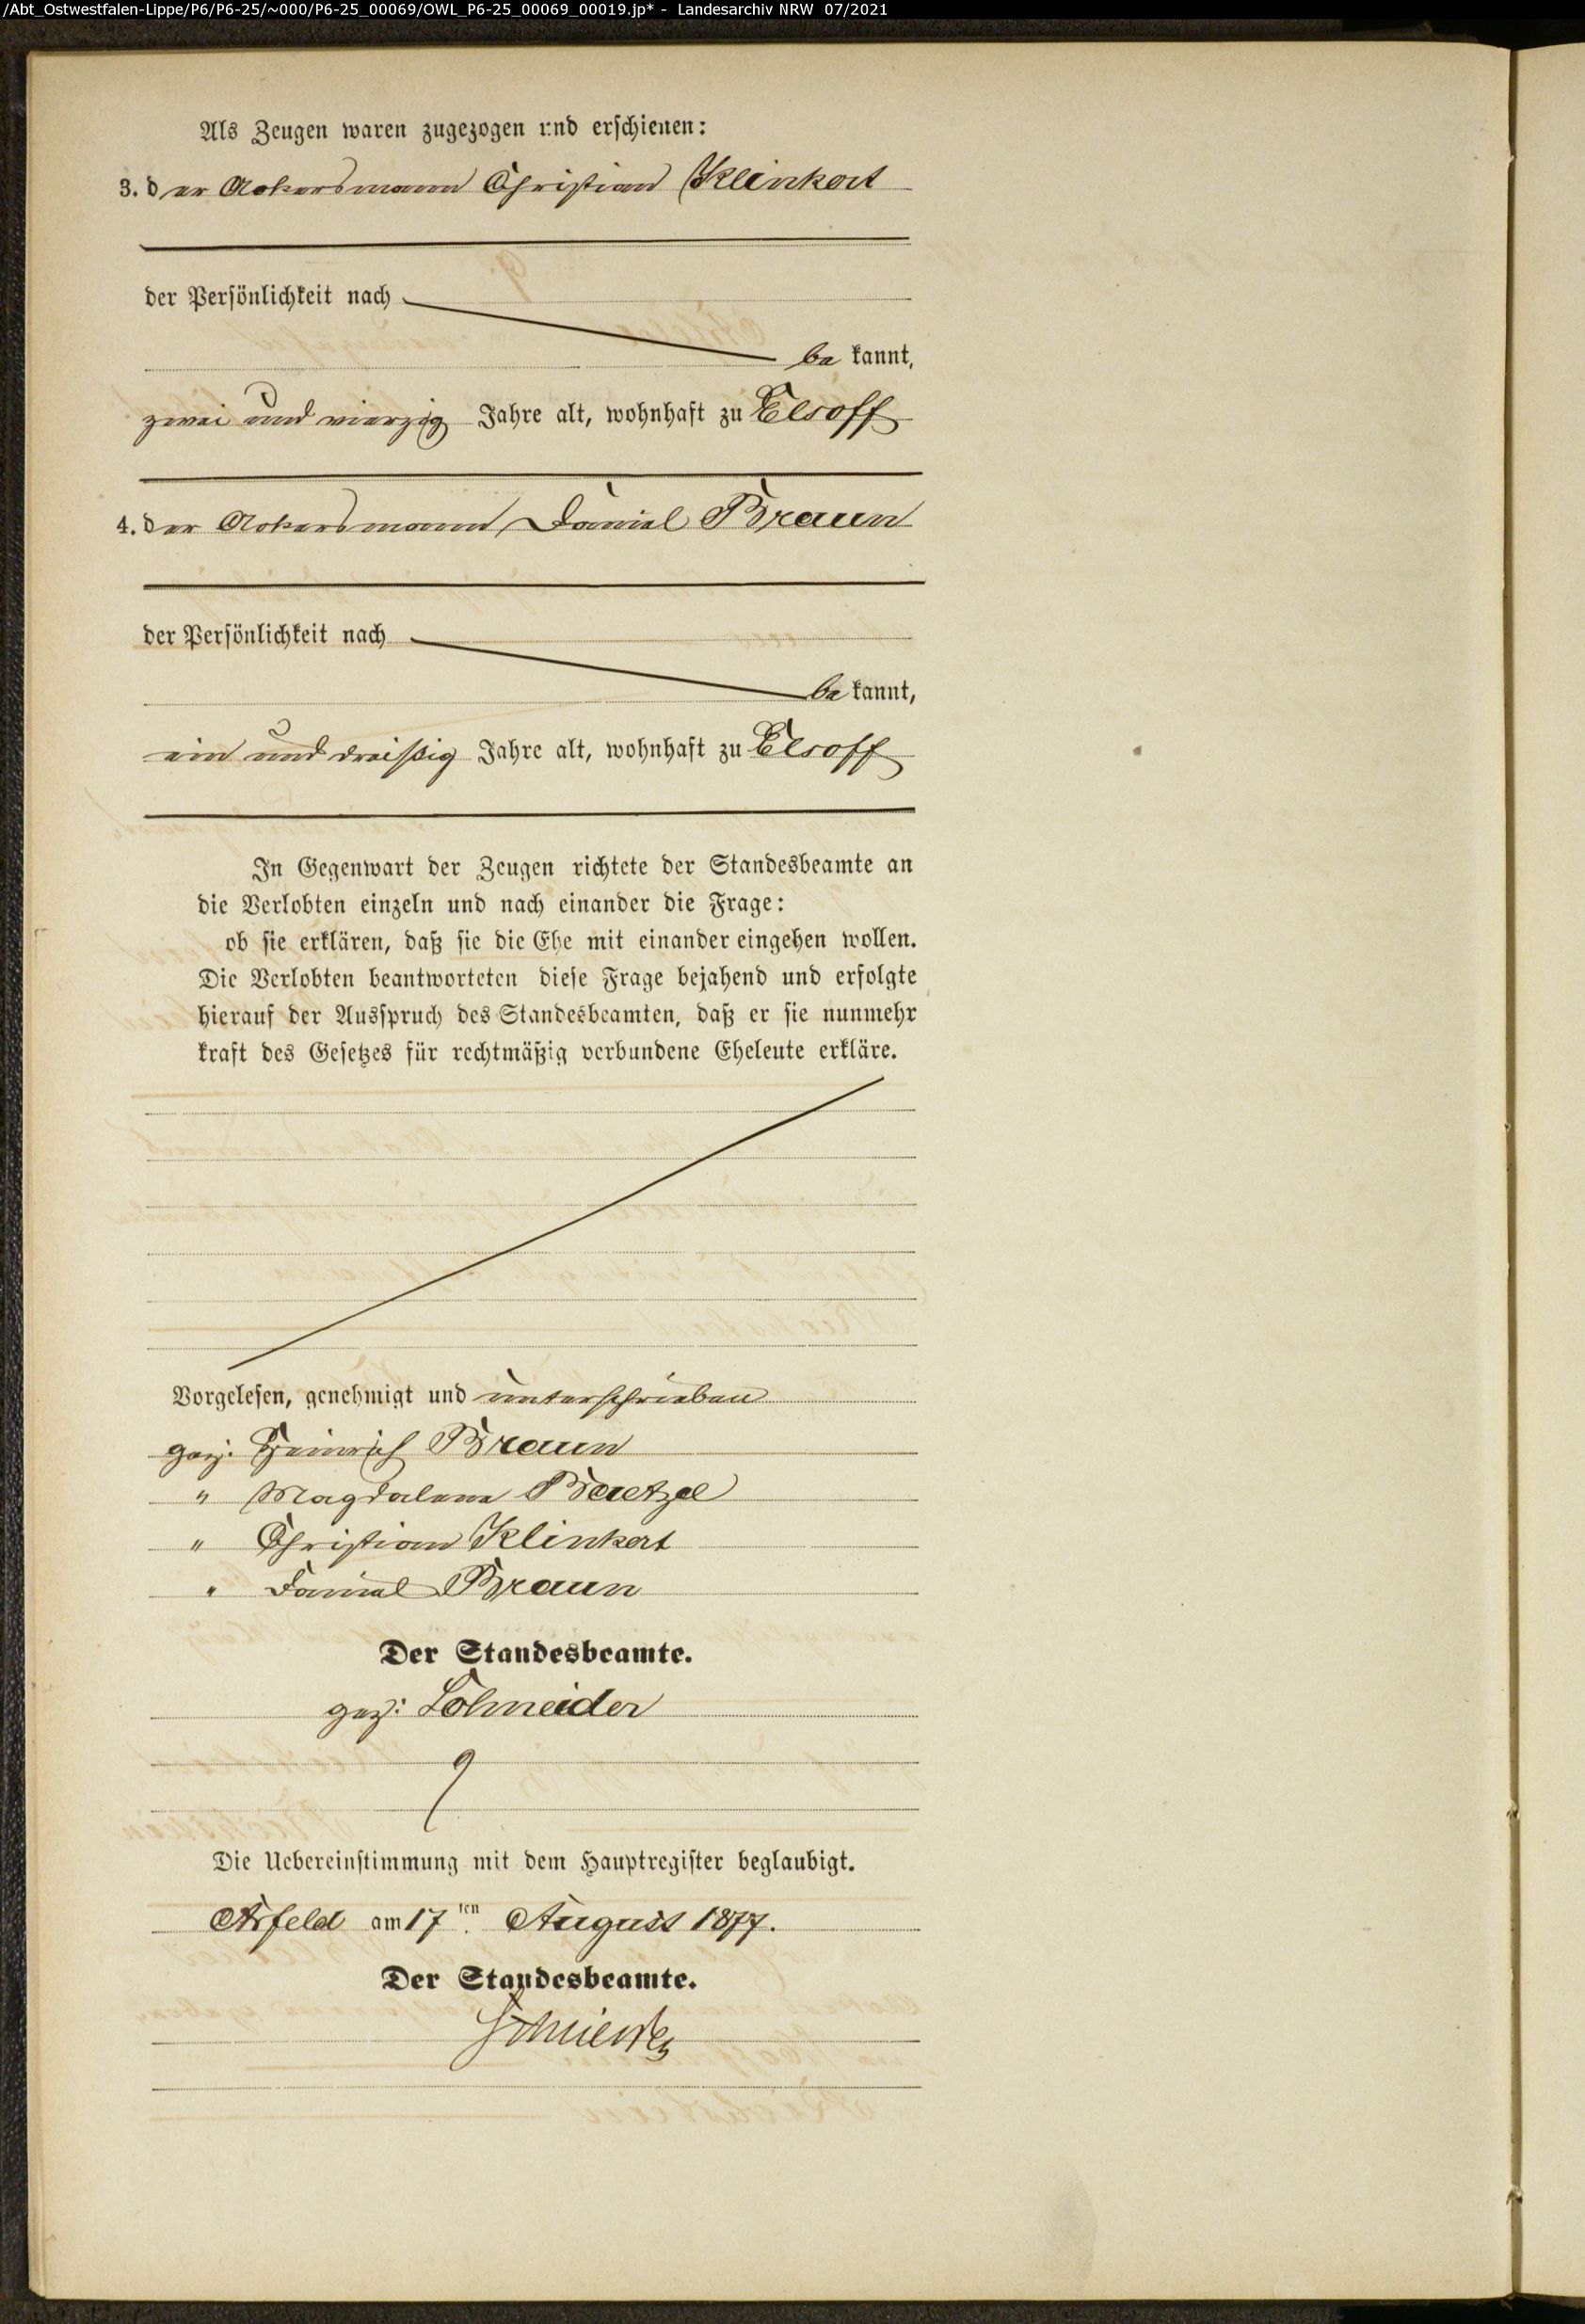 /Abt_Ostwestfalen-Lippe/P6/P6-25/~000/P6-25_00069/OWL_P6-25_00069_00019.jp* - Landesarchiv NRW 07/2021
Als Zeugen waren zugezogen und erschienen:
3. der Ackersmann Christian Klinkert
der Persönlichkeit nach
be kannt,
zwei und vierzig Jahre alt, wohnhaft zu Elsoff
4. der Ackersmann Daniel Braun
der Persönlichkeit nach
be kannt,
ein und dreißig Jahre alt, wohnhaft zu Elsoff
In Gegenwart der Zeugen richtete der Standesbeamte an
die Verlobten einzeln und nach einander die Frage:
ob sie erklären, daß sie die Ehe mit einander eingehen wollen.
Die Verlobten beantworteten diese Frage bejahend und erfolgte
hierauf der Ausspruch des Standesbeamten, daß er sie nunmehr
kraft des Gesetzes für rechtmäßig verbundene Eheleute erkläre.
Vorgelesen, genehmigt und unterschrieben
gez. Heinrich Braun
" Magdalena Baetzel
" Christian Klinkert
" Daniel Braun
Der Standesbeamte.
gez: Schneider
Die Uebereinstimmung mit dem Hauptregister beglaubigt.
Arfeld am 17ten August 1877.
Der Standesbeamte.
Schneider